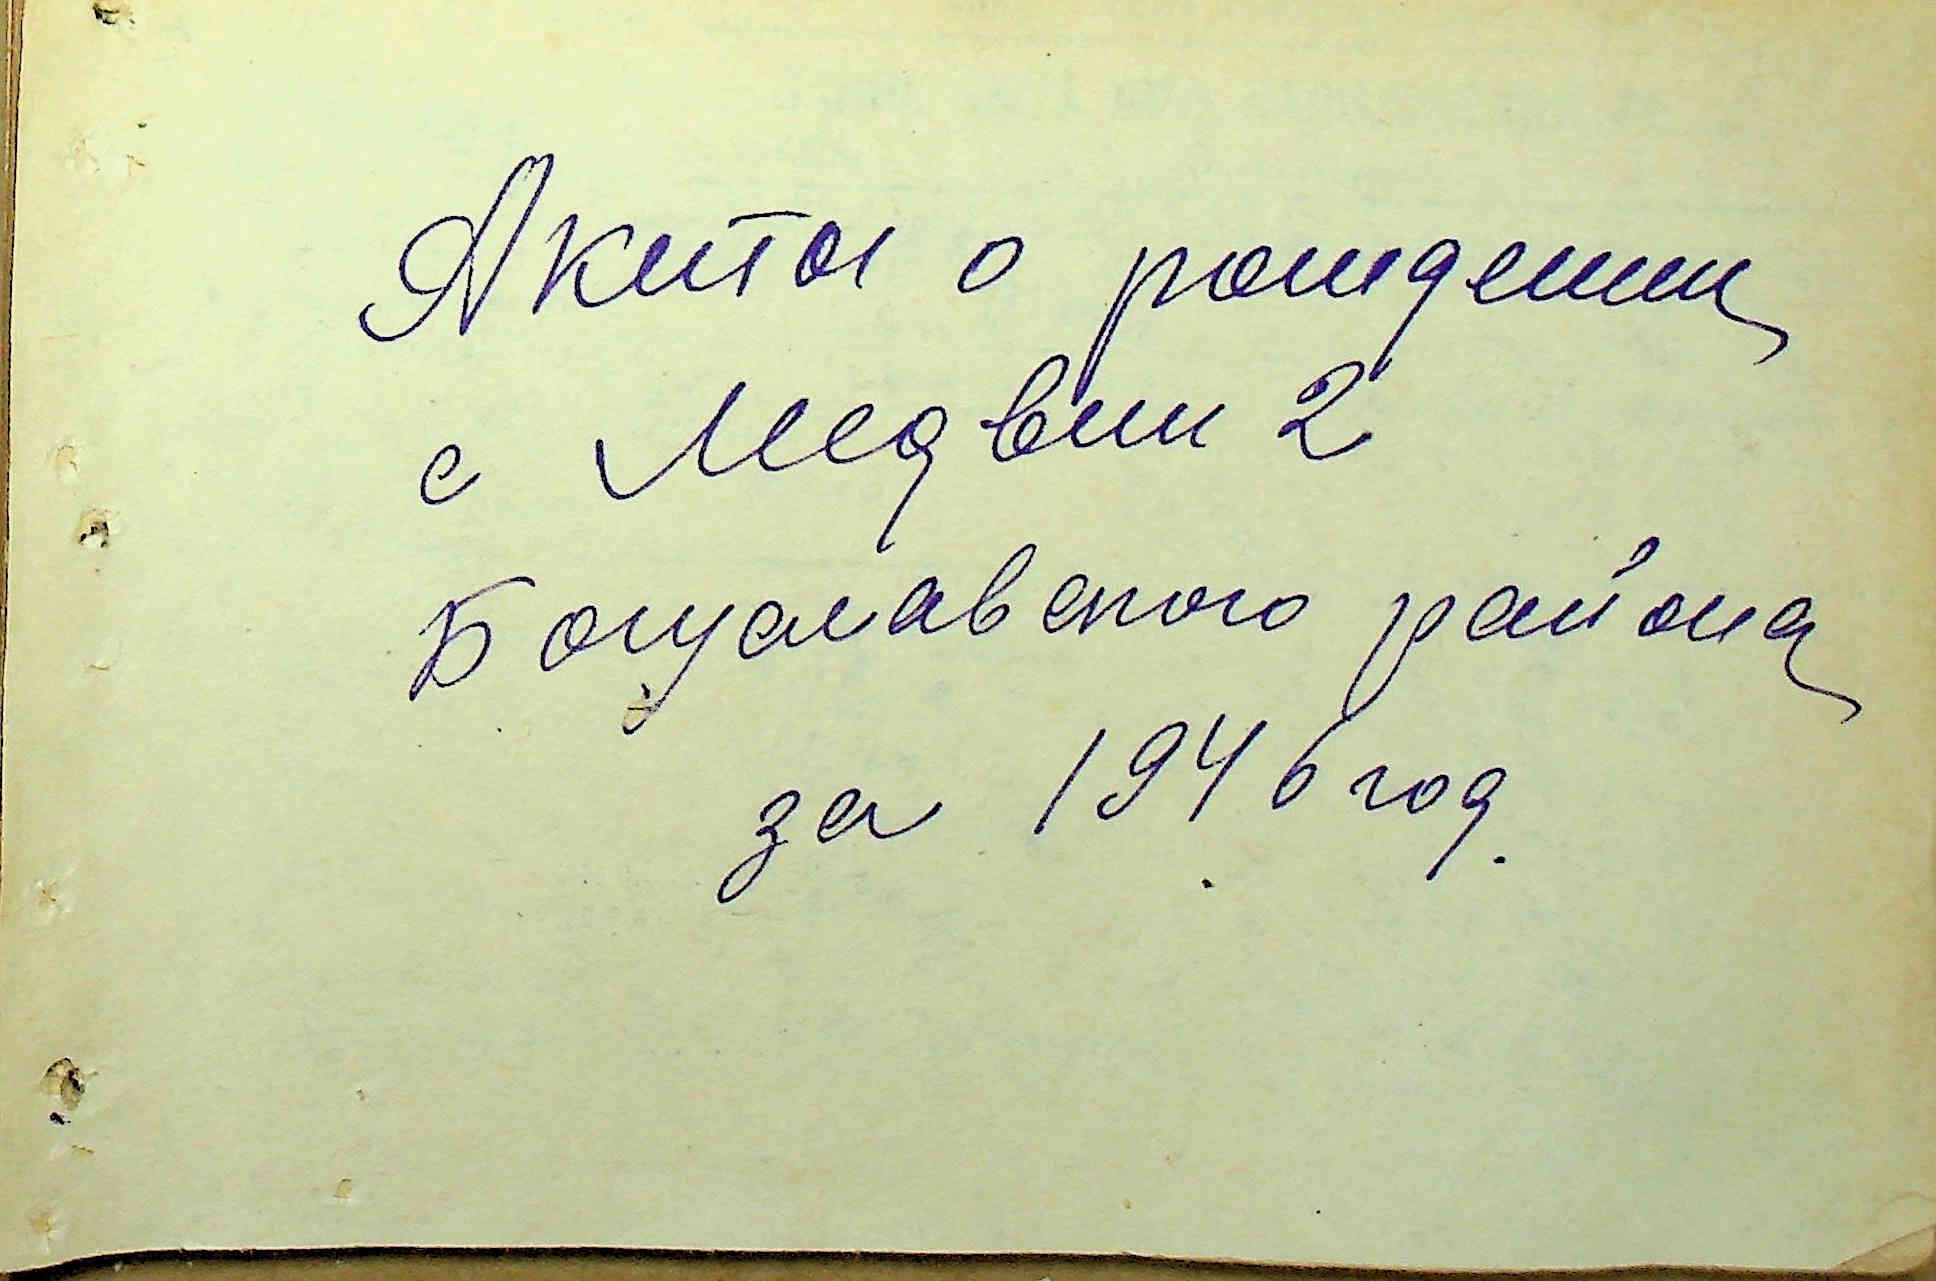 Акты о рождении
с Медвин 2
Богуславского района
за 1946 год.